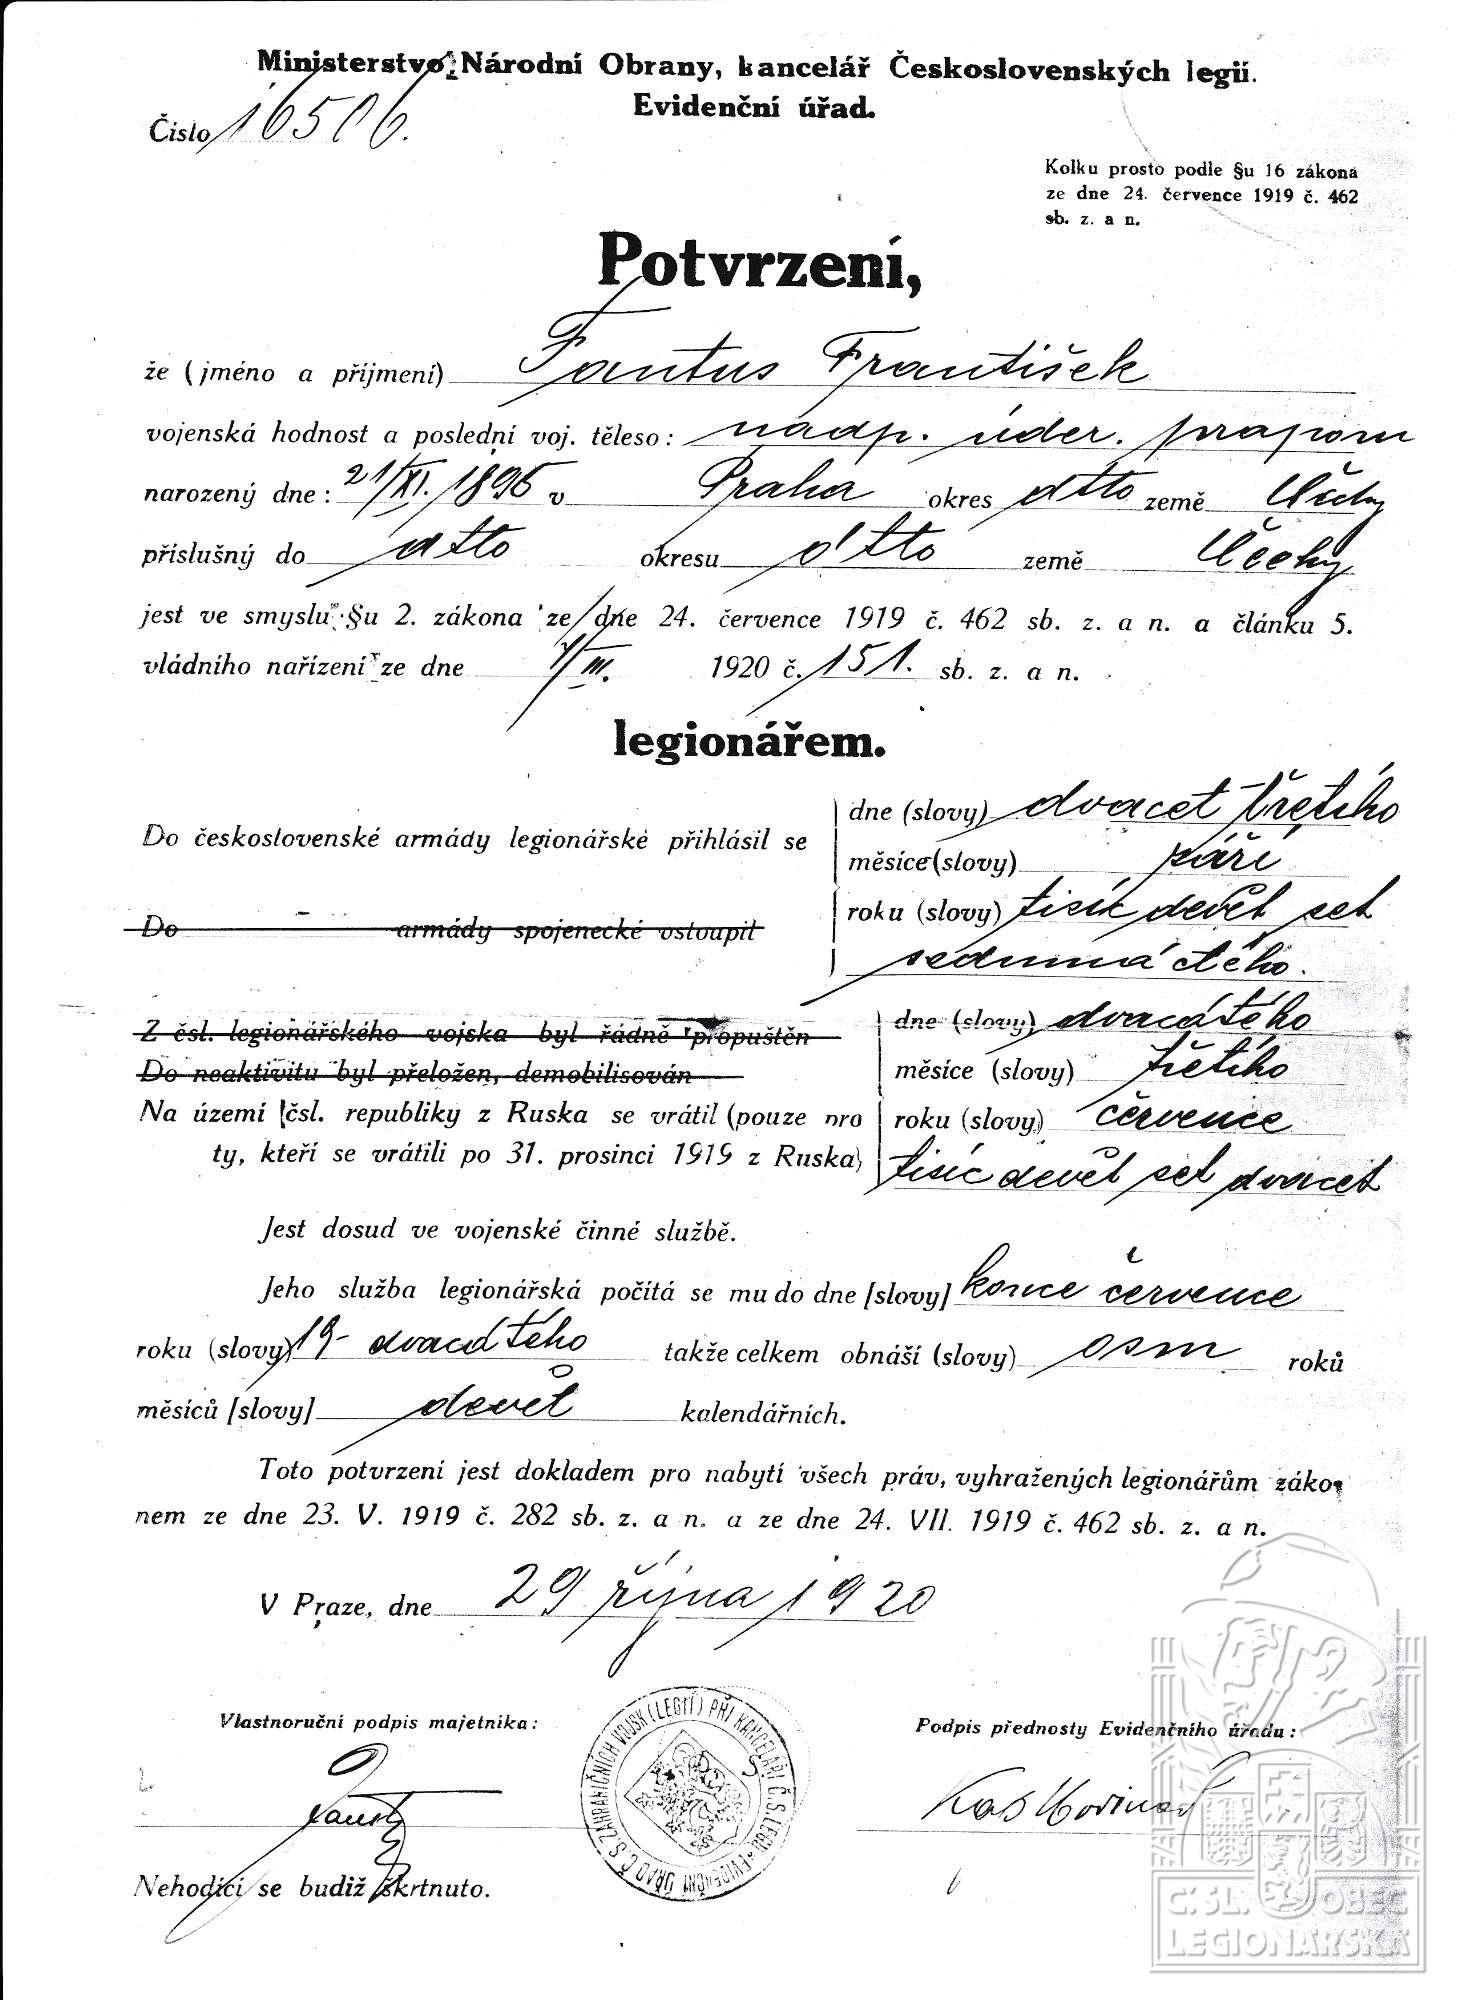 Ministerstvo Národní Obrany, kancelář Československých legií.
Evidenční úřad.
Číslo 16506.
Kolku prosto podle §u 16 zákona
ze dne 24. července 1919 č. 462
sb. z. a n.
Potvrzení,
že (jméno a příjmení) Fantus František
vojenská hodnost a poslední voj. těleso: nadp. úder. prapom
narozený dne: 21/XI. 1896 v Praha okres dtto země Čechy
příslušný do dtto okresu d'tto země Čechy
jest ve smyslu §u 2. zákona ze dne 24. července 1919 č. 462 sb. z. a n. a článku 5.
vládního nařízení ze dne 4/III. 1920 č. 151. sb. z. a n.
legionářem.
Do československé armády legionářské přihlásil se
dne (slovy) dvacet třetího
měsíce (slovy) září
Do armády spojenecké vstoupil
roku (slovy) tisíc devět set
sedmnáctého.
Z čsl. legionářského vojska byl řádně propuštěn
dne (slovy) dvacátého
Do neaktivitu byl přeložen, demobilisován
měsíce (slovy) třetího
Na území čsl. republiky z Ruska se vrátil (pouze pro
roku (slovy) července
ty, kteří se vrátili po 31. prosinci 1919 z Ruska)
tisíc devět set dvacet
Jest dosud ve vojenské činné službě.
Jeho služba legionářská počítá se mu do dne [slovy] konce července
roku (slovy) 19- dvacátého takže celkem obnáší (slovy) osm roků
měsíců [slovy] devět kalendářních.
Toto potvrzení jest dokladem pro nabytí všech práv, vyhražených legionářům záko-
nem ze dne 23. V. 1919 č. 282 sb. z. a n. a ze dne 24. VII. 1919 č. 462 sb. z. a n.
V Praze, dne 29 října 1920
Vlastnoruční podpis majetníka:
Podpis přednosty Evidenčního úřadu:
EVIDENČNÍ ÚŘAD Č. S. ZAHRANIČNÍCH VOJSK (LEGIÍ) PŘI KANCELÁŘI Č. S. LEGIÍ
Nehodící se budiž škrtnuto.
Č. SL. OBEC
LEGIONÁŘSKÁ